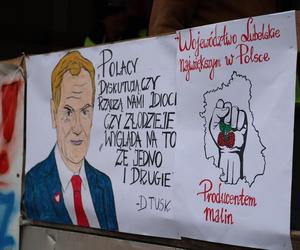 "POLACY
DYSKUTUJĄ CZY
RZĄDZĄ NAMI IDIOCI
CZY ZŁODZIEJE
WYGLĄDA NA TO
ŻE JEDNO
I DRUGIE"
-D.TUSK
Województwo Lubelskie
największym w Polsce
Producentem
Malin